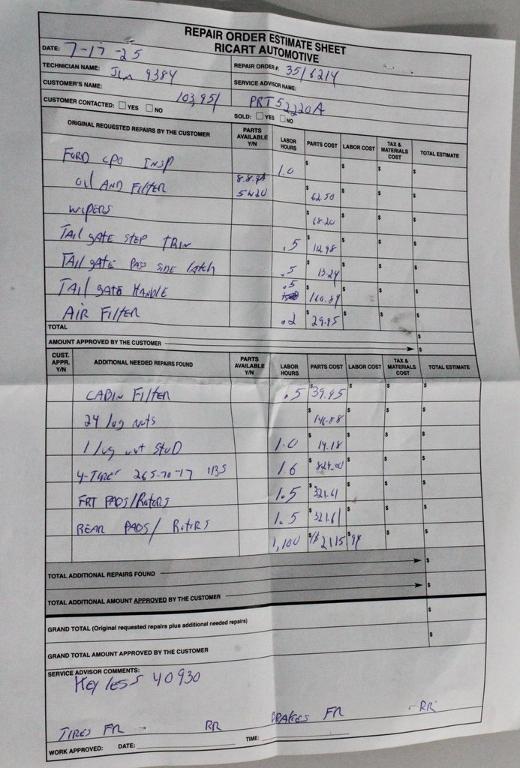 REPAIR ORDER ESTIMATE SHEET
RICART AUTOMOTIVE
DATE: 7-17-25
TECHNICIAN NAME: Jim 9384 REPAIR ORDER #: 3516214
CUSTOMER'S NAME: SERVICE ADVISOR NAME:
CUSTOMER CONTACTED: YES NO 103,951 PRT52220A
SOLD: YES NO
ORIGINAL REQUESTED REPAIRS BY THE CUSTOMER PARTS AVAILABLE Y/N LABOR HOURS PARTS COST LABOR COST TAX & MATERIALS COST TOTAL ESTIMATE
FORD CPO INSP 1.0 $ $ $ $
OIL AND FILTER 5W20 $ 62.50 $ $ $
WIPERS $ 68.20 $ $ $
TAIL gATE STEP TRIM .5 $ 12.98 $ $ $
TAIL gATE PASS SIDE latch .5 $ 13.24 $ $ $
TAIL gATE HANDLE .5 $ $ $ $
AIR FILTER .2 $ 29.95 $ $ $
TOTAL
AMOUNT APPROVED BY THE CUSTOMER $
CUST. APPR. Y/N ADDITIONAL NEEDED REPAIRS FOUND PARTS AVAILABLE Y/N LABOR HOURS PARTS COST LABOR COST TAX & MATERIALS COST TOTAL ESTIMATE
CABIN FILTER .5 $ 39.95 $ $ $
24 lug nuts $ 146.88 $ $ $
1 lug nut STUD 1.0 $ 19.18 $ $ $
4-TIRES 265-70-17 1135 1.6 $ 824.00 $ $ $
FRT PADS/ROTORS 1.5 $ 321.61 $ $ $
REAR PADS/ROTORS 1.5 $ 321.61 $ $ $
1,100 $ 2115 94 $ $ $
TOTAL ADDITIONAL REPAIRS FOUND $
TOTAL ADDITIONAL AMOUNT APPROVED BY THE CUSTOMER $
GRAND TOTAL (Original requested repairs plus additional needed repairs) $
GRAND TOTAL AMOUNT APPROVED BY THE CUSTOMER $
SERVICE ADVISOR COMMENTS:
KEYLESS 40930
TIRES FR RR BRAKES FR RR
WORK APPROVED: DATE: TIME: